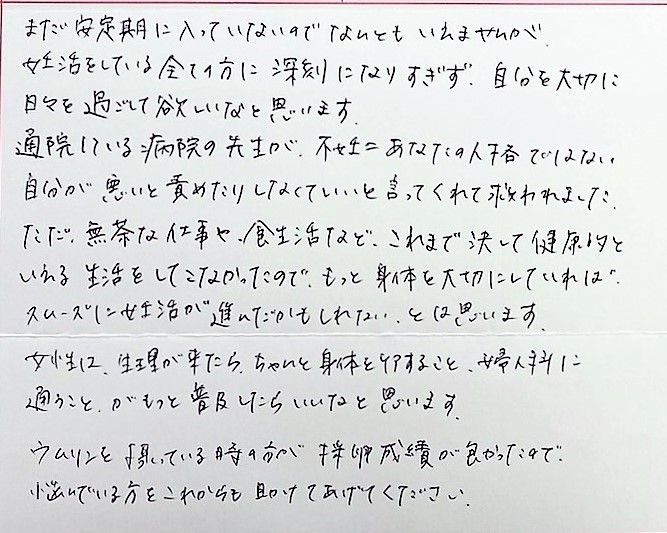 まだ安定期に入っていないのでなんともいえませんが、
妊活をしている全ての方に深刻になりすぎず、自分を大切に
日々を過ごして欲しいなと思います。
通院している病院の先生が、不妊＝あなたの人格ではない
自分が悪いと責めたりしなくていいと言ってくれて救われました。
ただ、無茶な仕事や、食生活など、これまで決して健康的と
いえる生活をしてこなかったので、もっと身体を大切にしていれば、
スムーズに妊活が進んだかもしれない、とは思います。
女性は、生理が来たら、ちゃんと身体をケアすること、婦人科に
通うこと、がもっと普及したらいいなと思います。
ウムリンを摂っている時の方が採卵成績が良かったので、
悩んでいる方をこれからも助けてあげてください。